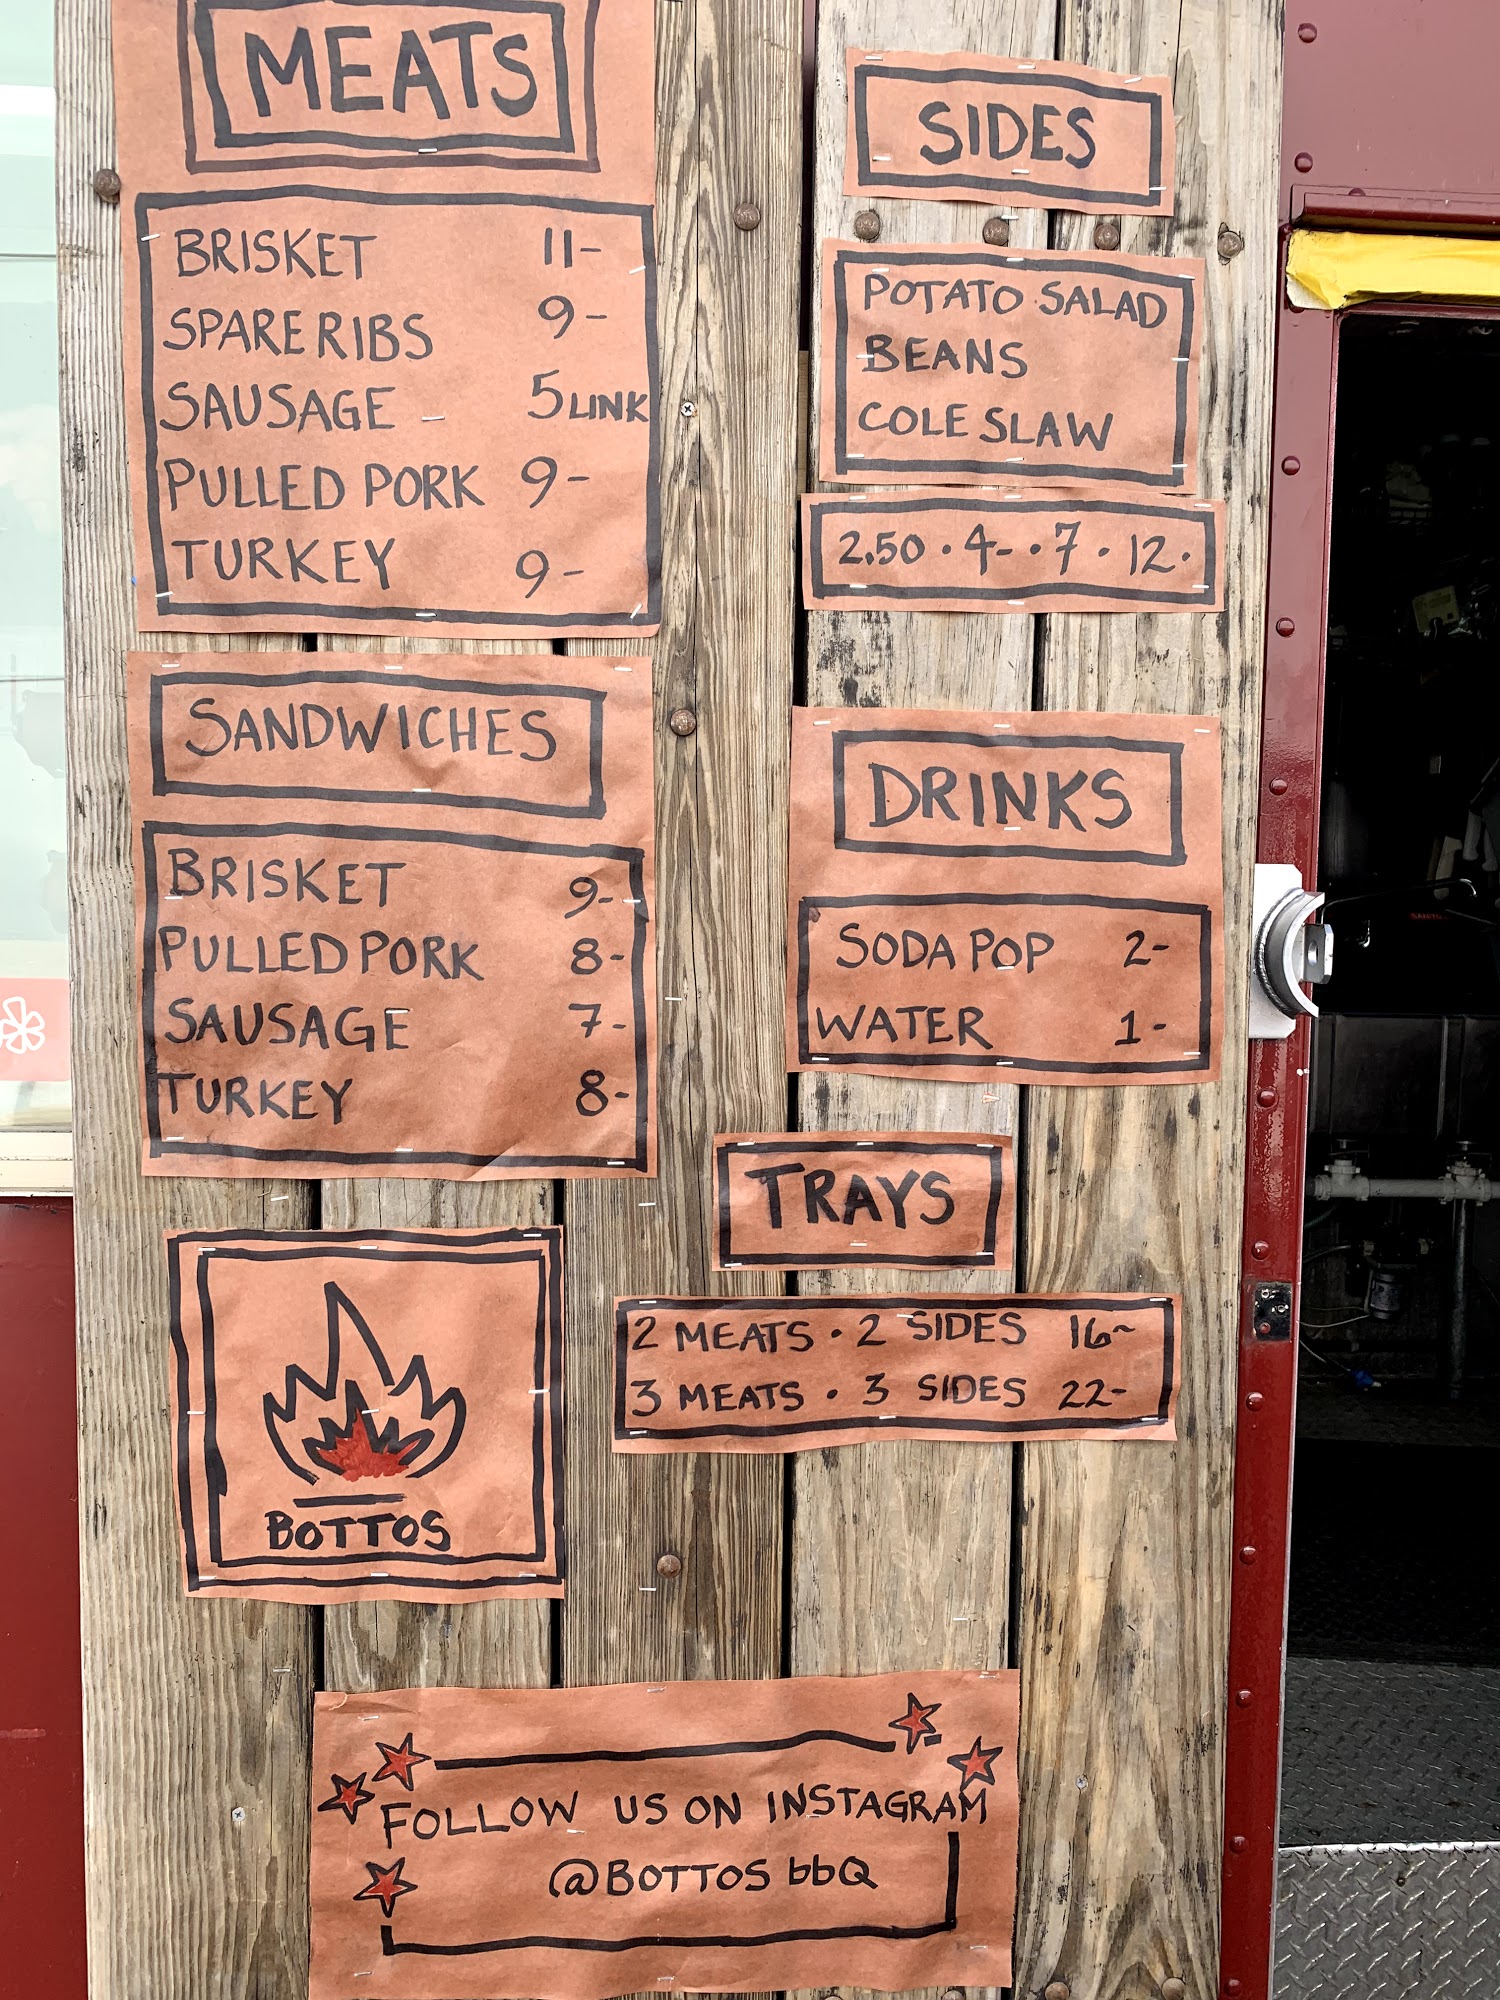 MEATS
BRISKET 11-
SPARERIBS 9-
SAUSAGE - 5 LINK
PULLED PORK 9-
TURKEY 9-
SANDWICHES
BRISKET 9-
PULLED PORK 8-
SAUSAGE 7-
TURKEY 8-
BOTTOS
SIDES
POTATO SALAD
BEANS
COLE SLAW
2.50 · 4- · 7 · 12 ·
DRINKS
SODA POP 2-
WATER 1-
TRAYS
2 MEATS · 2 SIDES 16~
3 MEATS · 3 SIDES 22-
FOLLOW US ON INSTAGRAM
@BOTTOS bbQ